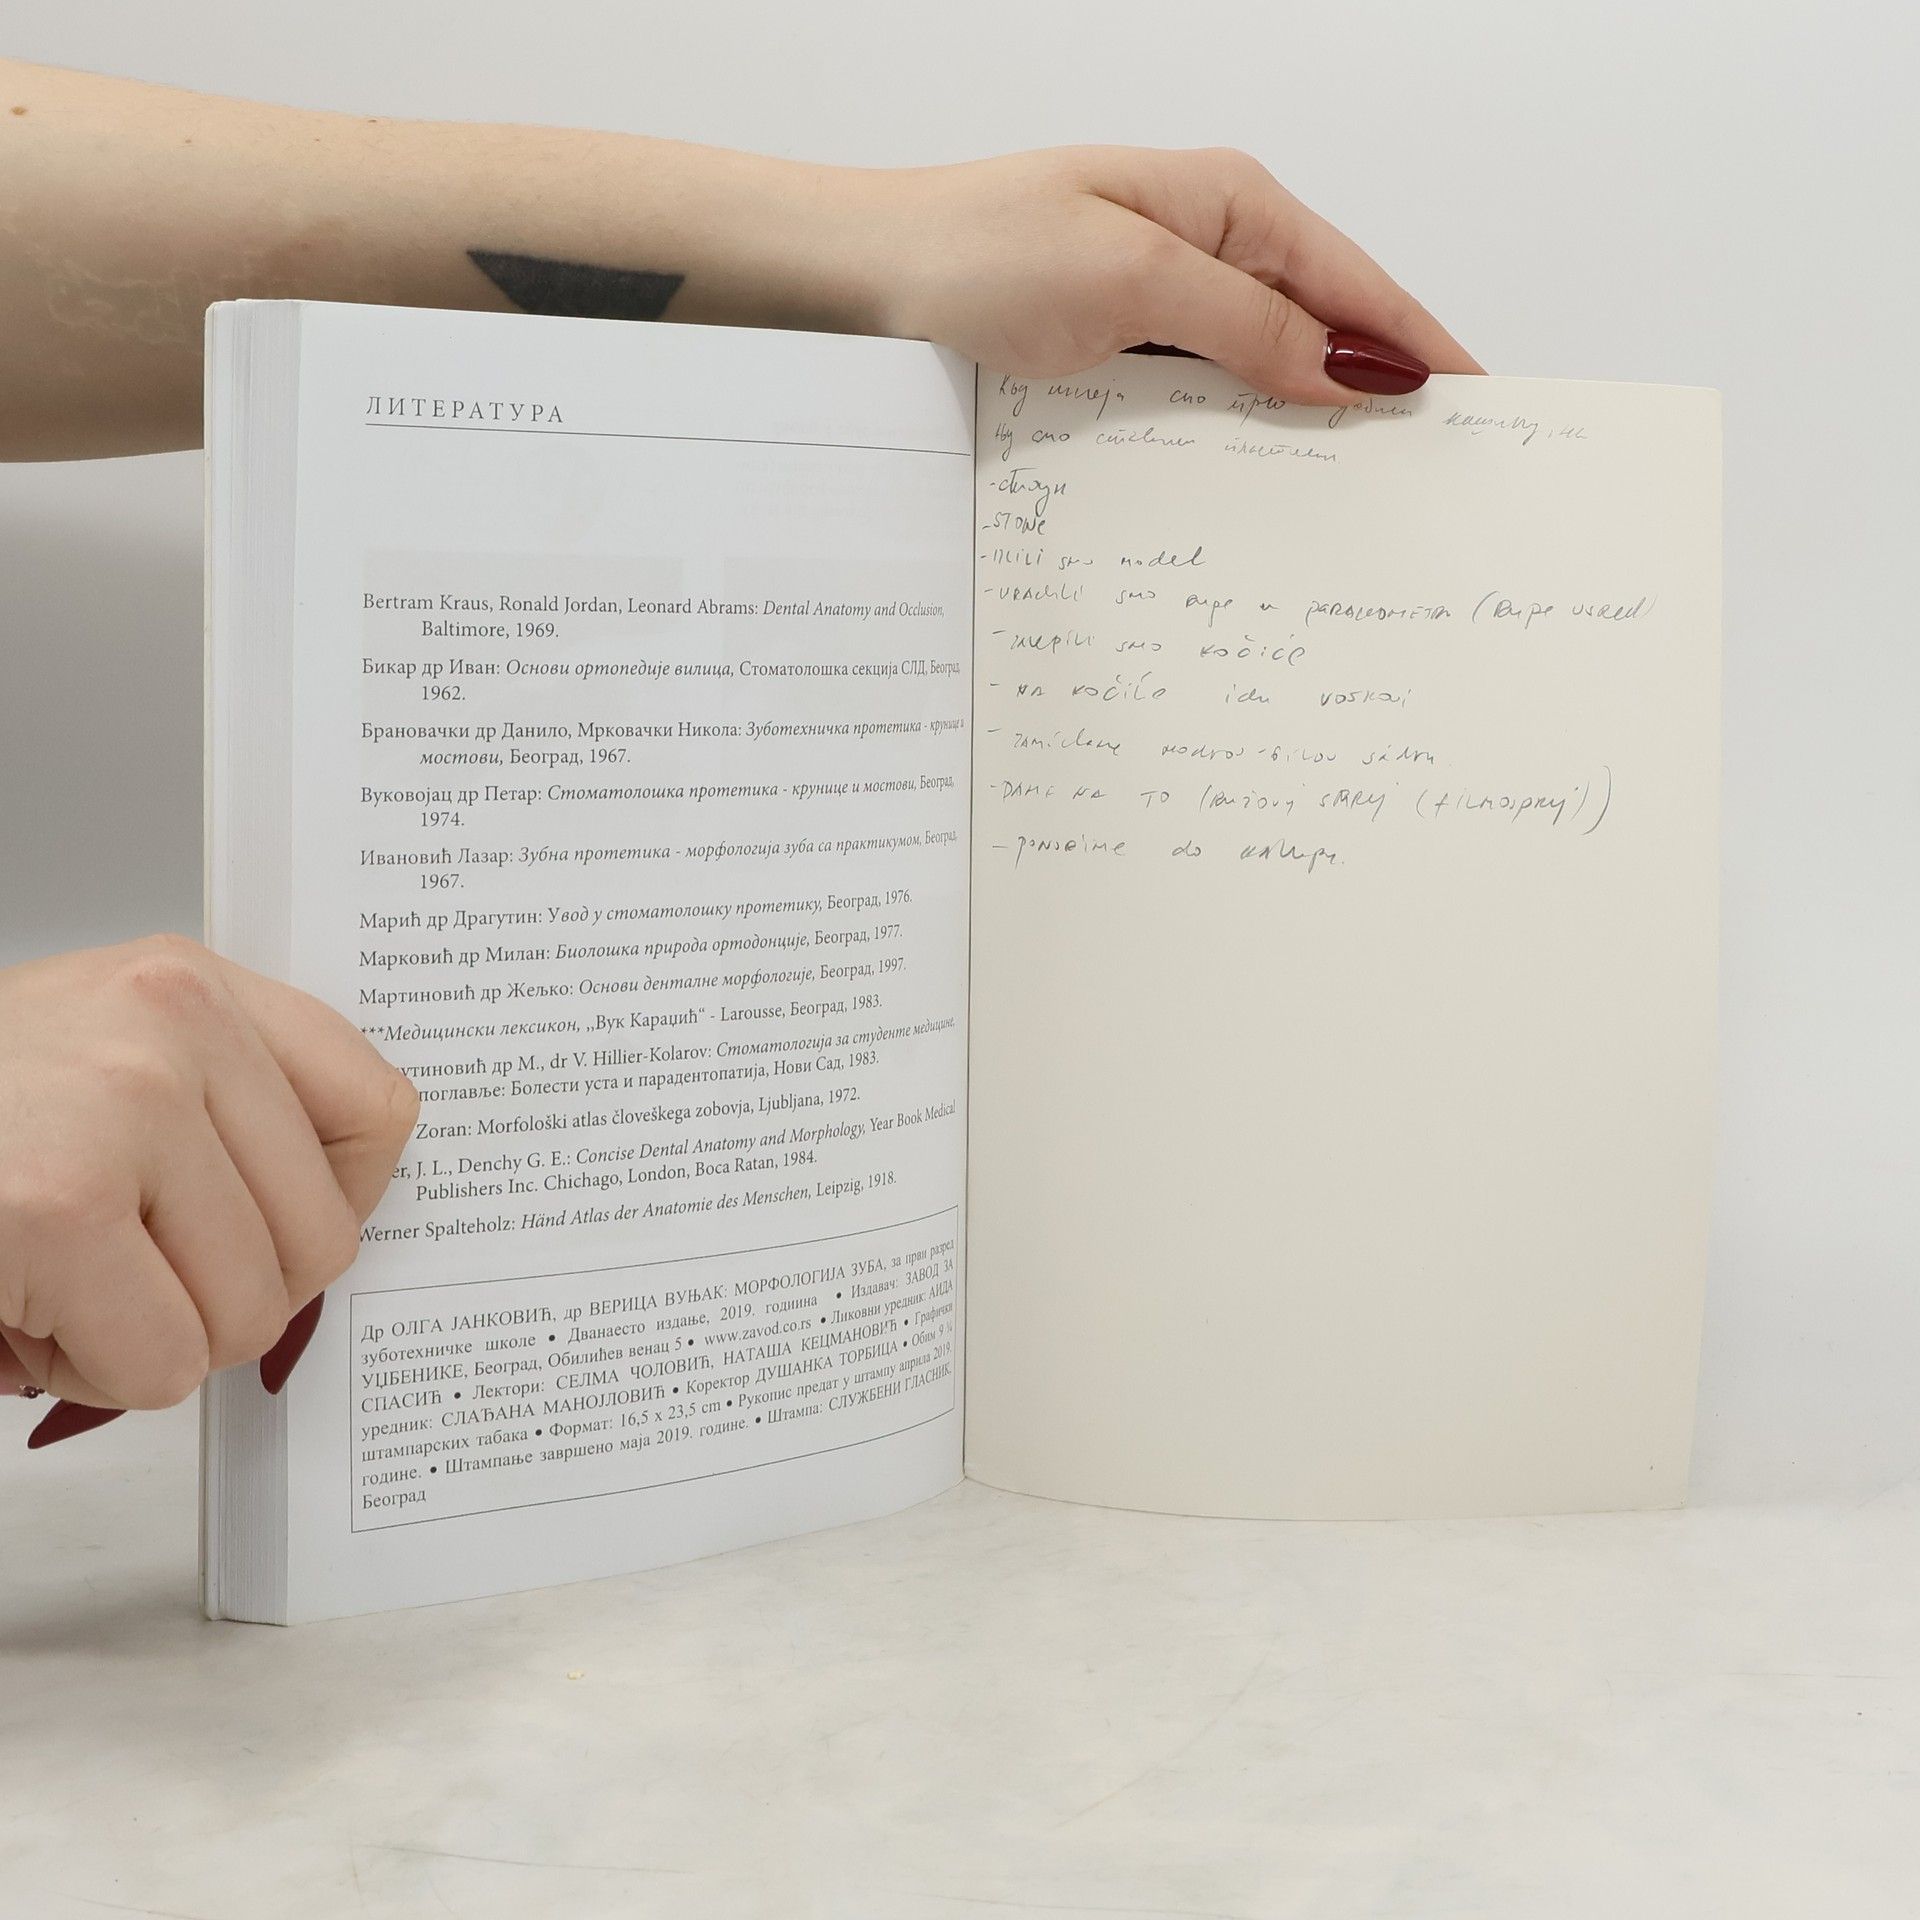 ЛИТЕРАТУРА
Bertram Kraus, Ronald Jordan, Leonard Abrams: Dental Anatomy and Occlusion,
Baltimore, 1969.
Бикар др Иван: Основи ортопедије вилица, Стоматолошка секција СЛД, Београд,
1962.
Брановачки др Данило, Мрковачки Никола: Зуботехничка протетика - крунице и
мостови, Београд, 1967.
Вуковојац др Петар: Стоматолошка протетика - крунице и мостови, Београд,
1974.
Ивановић Лазар: Зубна протетика - морфологија зуба са практикумом, Београд,
1967.
Марић др Драгутин: Увод у стоматолошку протетику, Београд, 1976.
Марковић др Милан: Биолошка природа ортодонције, Београд, 1977.
Мартиновић др Жељко: Основи денталне морфологије, Београд, 1997.
***Медицински лексикон, „Вук Караџић“ - Larousse, Београд, 1983.
утиновић др М., dr V. Hillier-Kolarov: Стоматологија за студенте медицине,
поглавље: Болести уста и парадентопатија, Нови Сад, 1983.
Zoran: Morfološki atlas človeškega zobovja, Ljubljana, 1972.
er, J. L., Denchy G. E.: Concise Dental Anatomy and Morphology, Year Book Medical
Publishers Inc. Chichago, London, Boca Ratan, 1984.
Werner Spalteholz: Händ Atlas der Anatomie des Menschen, Leipzig, 1918.
Др ОЛГА ЈАНКОВИЋ, др ВЕРИЦА ВУЊАК: МОРФОЛОГИЈА ЗУБА, за први разред
зуботехничке школе • Дванаесто издање, 2019. годиина • Издавач: ЗАВОД ЗА
УЏБЕНИКЕ, Београд, Обилићев венац 5 • www.zavod.co.rs • Ликовни уредник: АИДА
СПАСИЋ • Лектори: СЕЛМА ЧОЛОВИЋ, НАТАША КЕЦМАНОВИЋ • Графички
уредник: СЛАЂАНА МАНОЈЛОВИЋ • Коректор ДУШАНКА ТОРБИЦА • Обим 9 ¼
штампарских табака • Формат: 16,5 x 23,5 cm • Рукопис предат у штампу априла 2019.
године. • Штампање завршено маја 2019. године. • Штампа: СЛУЖБЕНИ ГЛАСНИК,
Београд
смо
смо
- STONE
smo model
- URADILI smo
smo kočiće
- NA kočiće idu voskovi
- DAME NA TO
- ponorime do